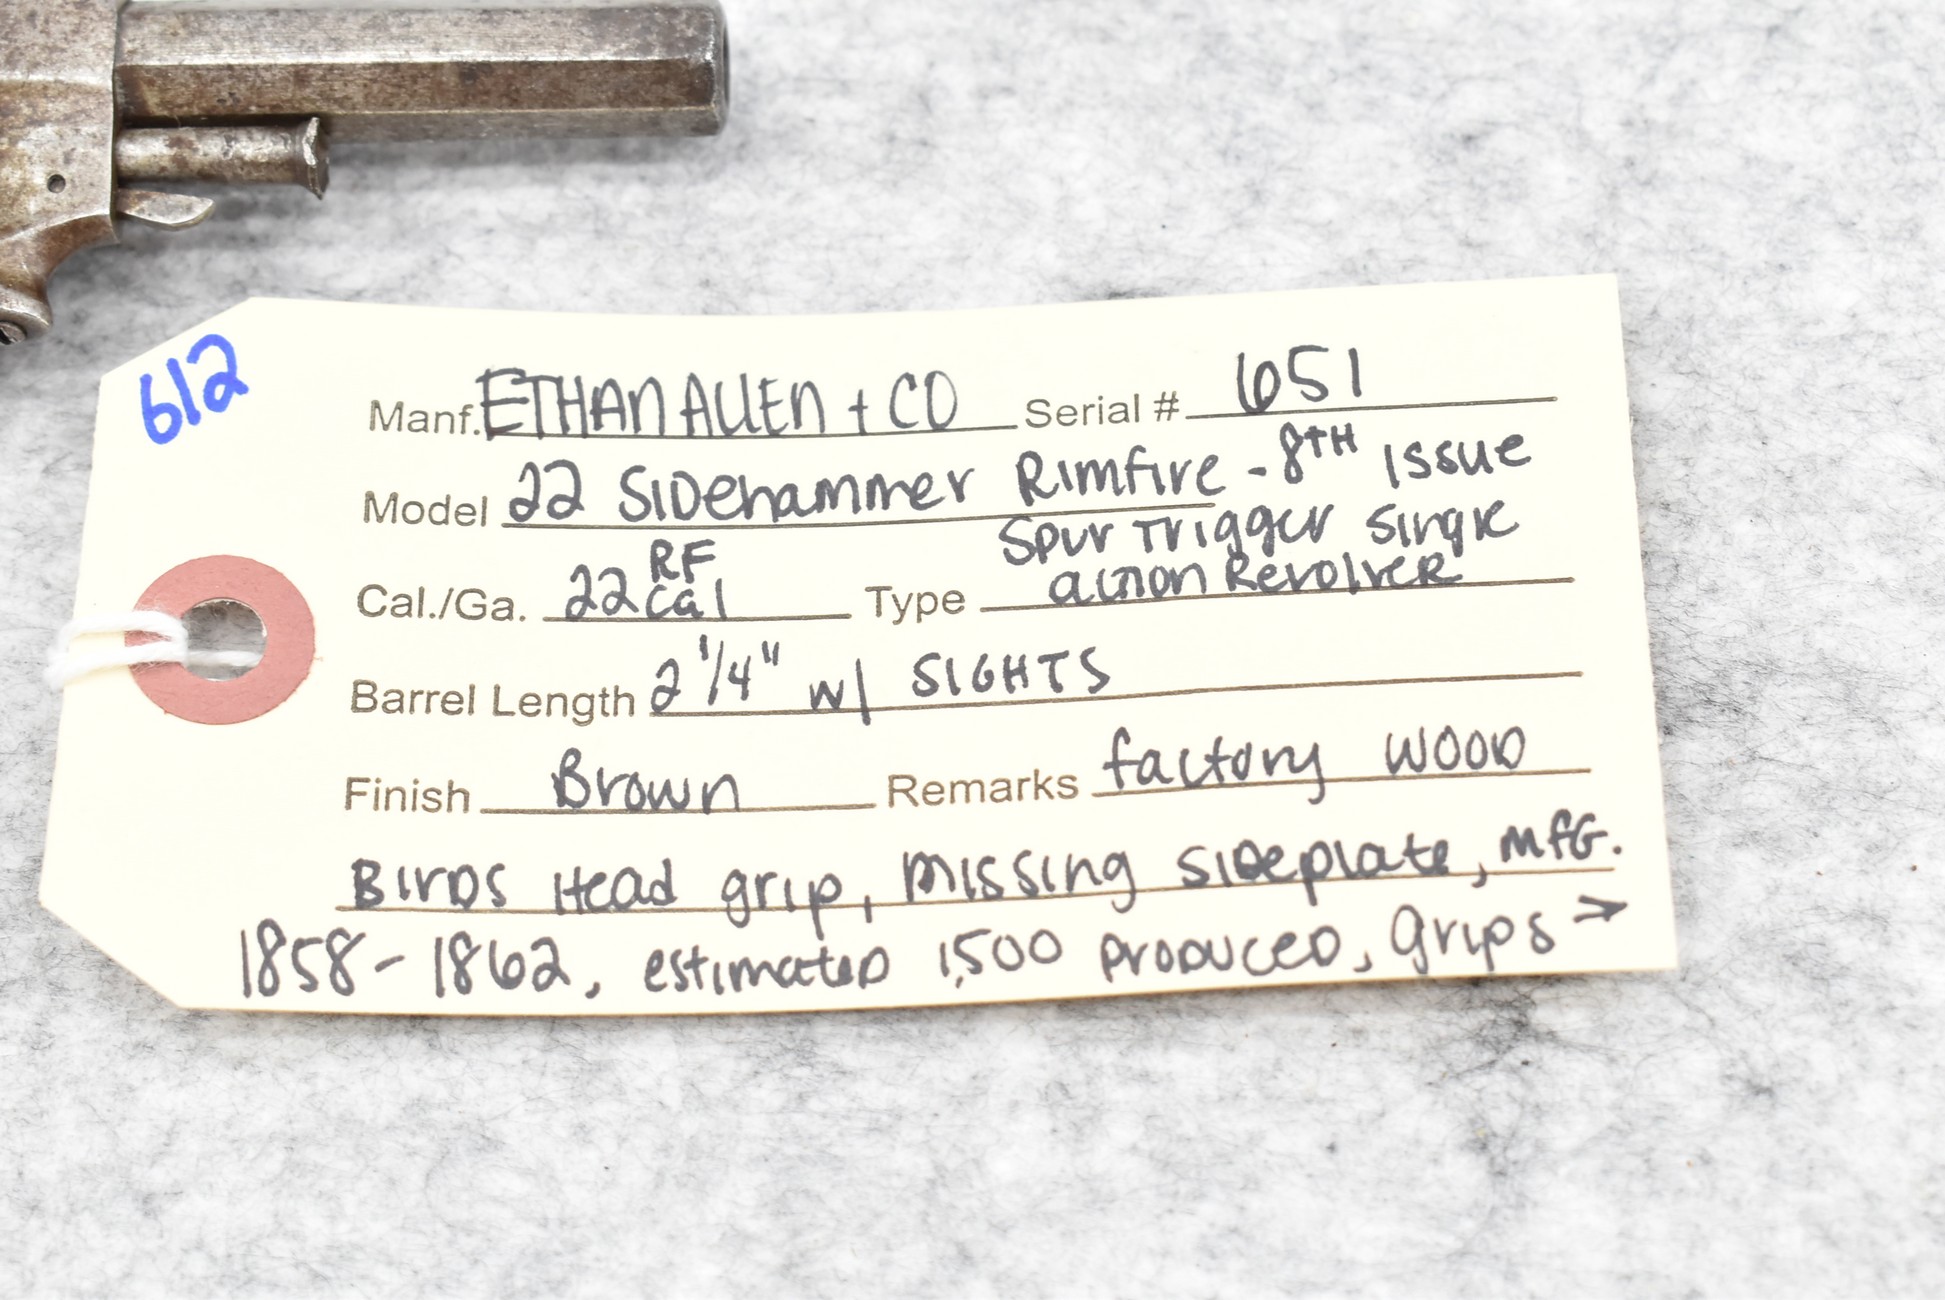 612
Manf. ETHAN ALLEN + CO Serial # 651
Model 22 SIDehammer Rimfire - 8TH Issue
Cal./Ga. 22 RF cal Type Spur Trigger Single action Revolver
Barrel Length 2 1/4" w/ SIGHTS
Finish Brown Remarks factory WOOD
BIrDS Head grip, missing sideplate, MFG.
1858-1862, estimated 1,500 produced, grips →